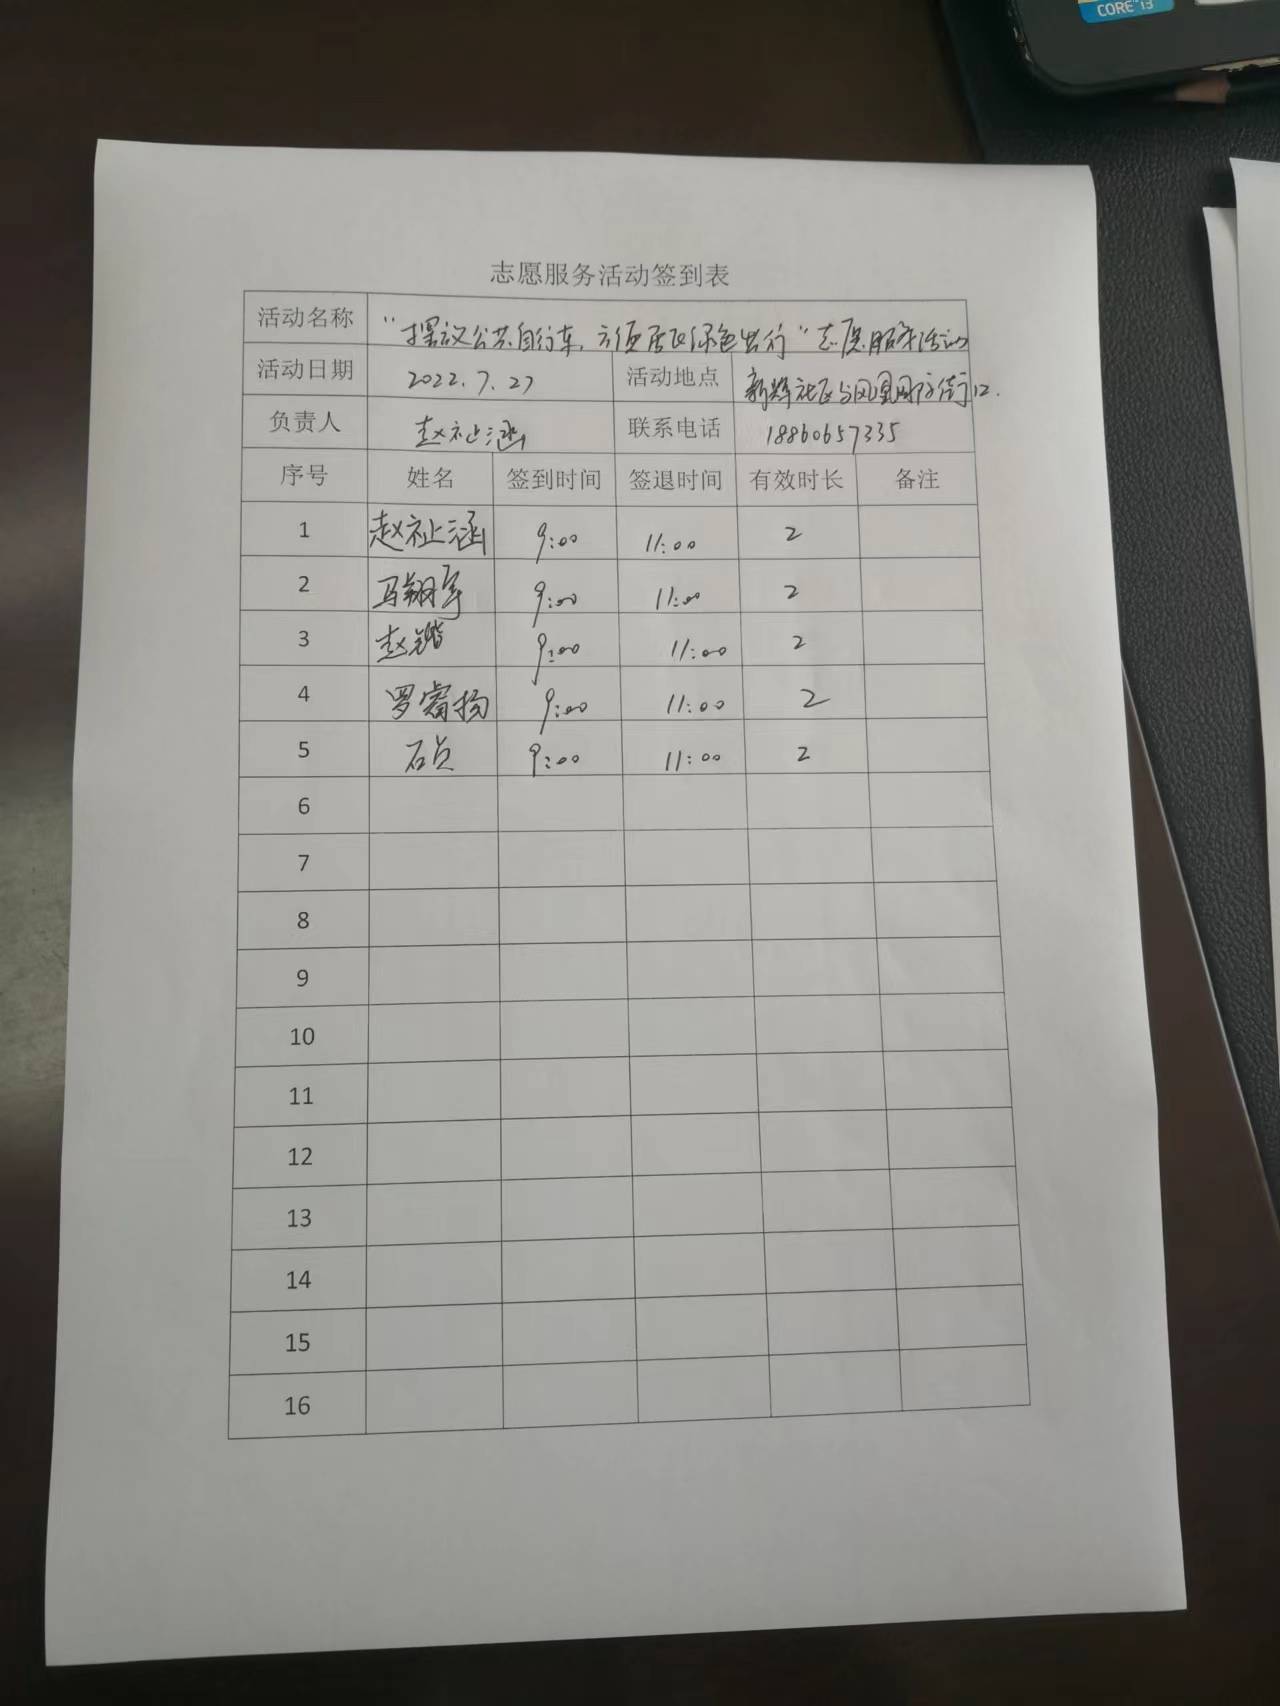 CORE i3
志愿服务活动签到表
活动名称 "摆放公共自行车,方便居民绿色出行"志愿服务活动
活动日期 2022.7.27 活动地点 新辉社区与凤凰 街口.
负责人 赵祉涵 联系电话 18860657335
序号 姓名 签到时间 签退时间 有效时长 备注
1 赵祉涵 9:00 11:00 2
2 马翔宇 9:00 11:00 2
3 赵锴 9:00 11:00 2
4 罗睿扬 9:00 11:00 2
5 石贞 9:00 11:00 2
6
7
8
9
10
11
12
13
14
15
16